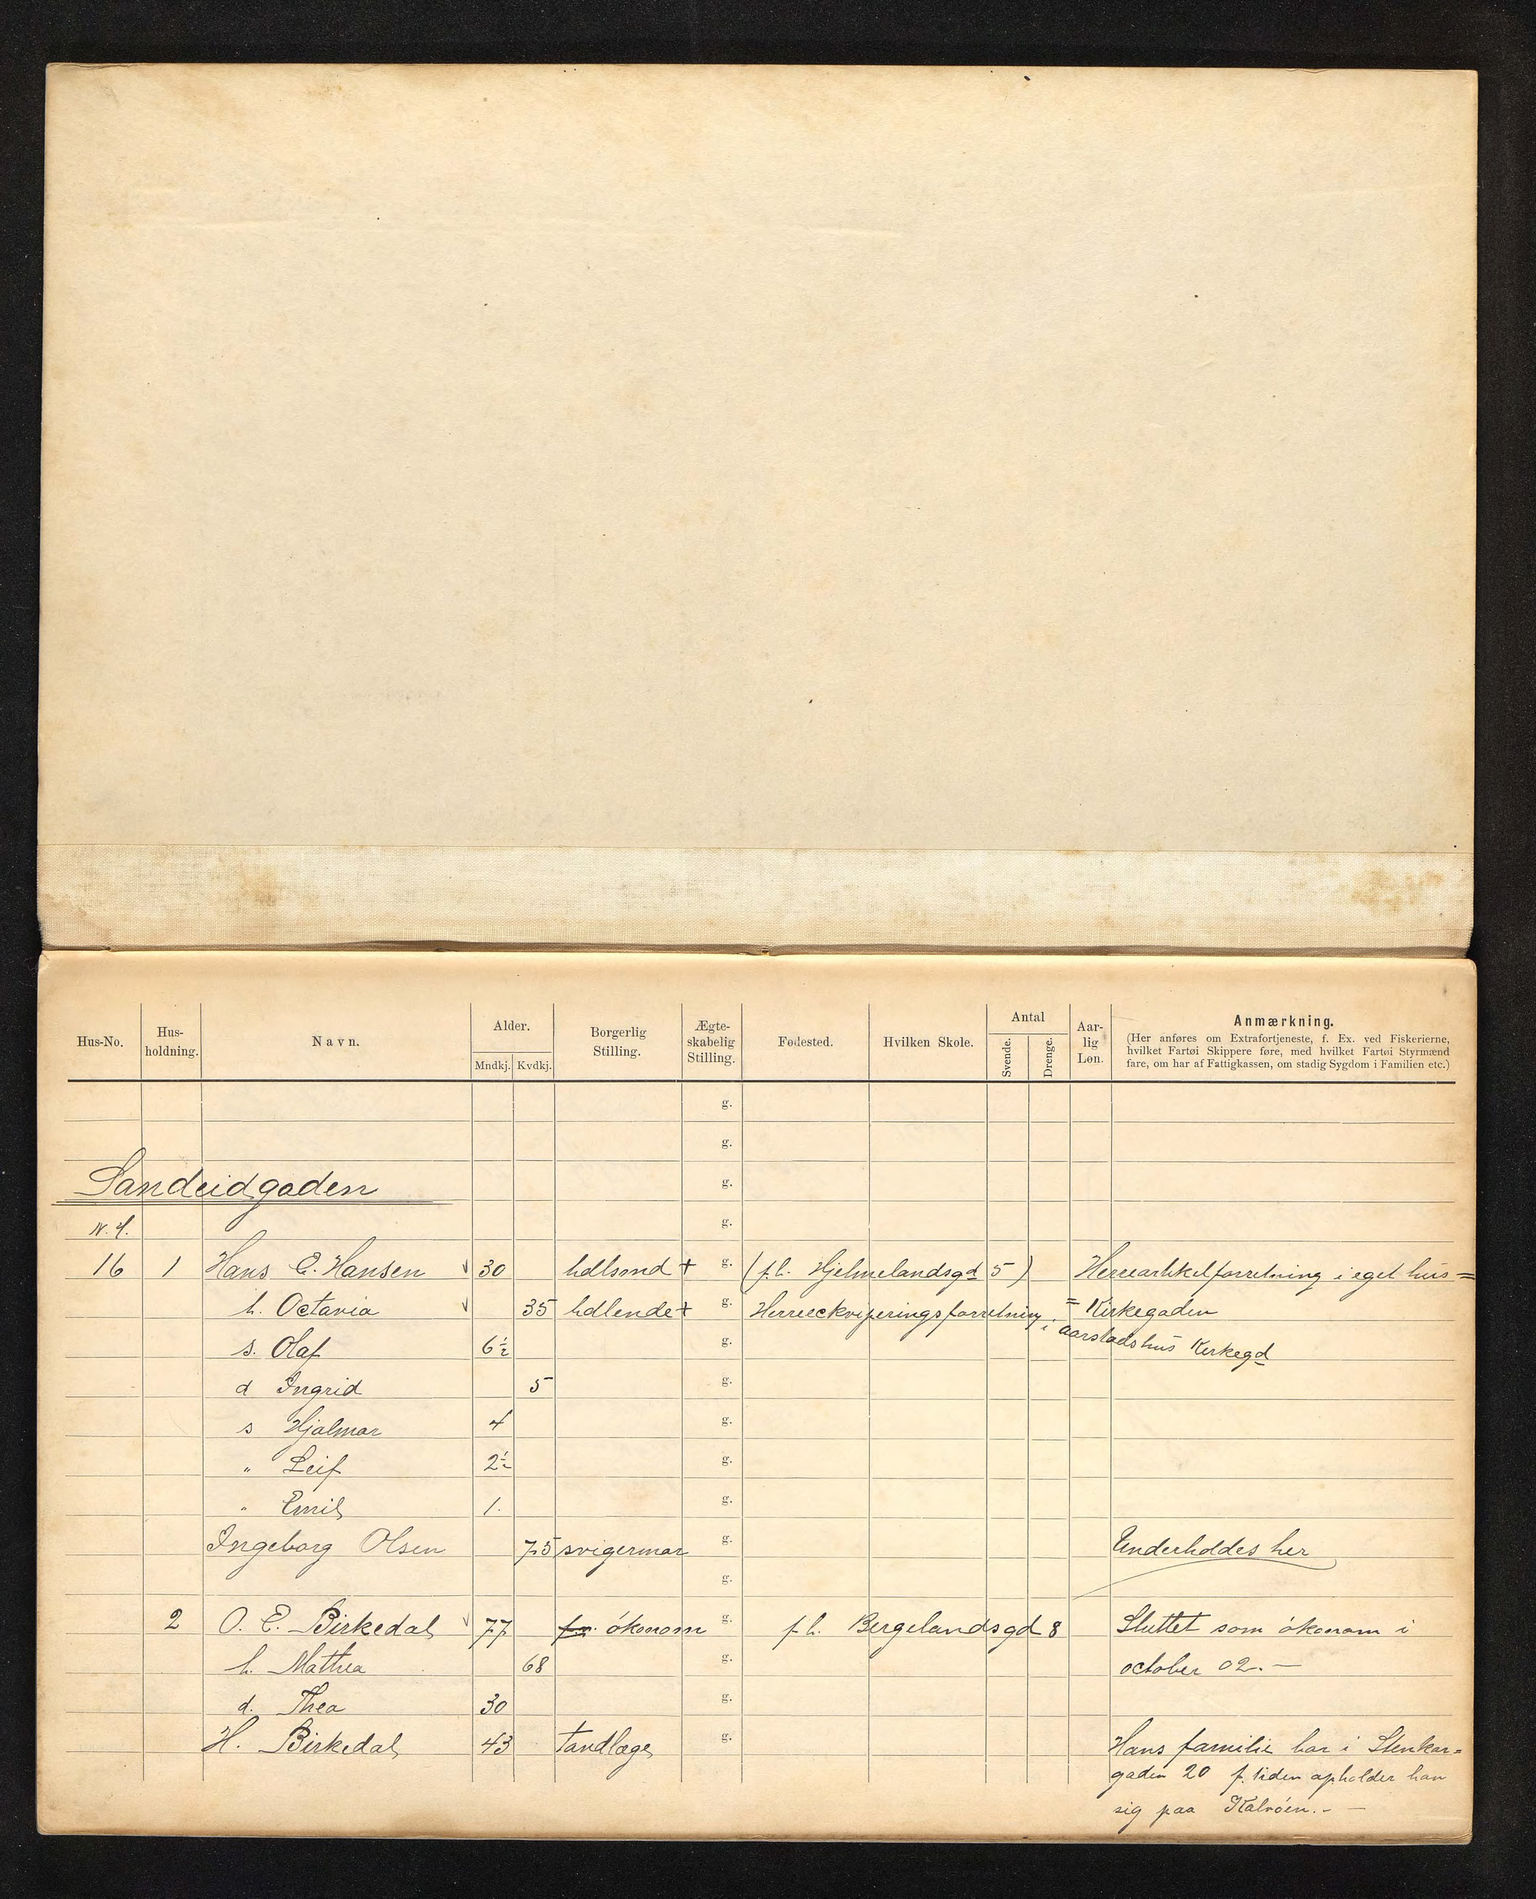 Hus-No. Hus-holdning. Navn. Alder. Mndkj. Kvdkj. Borgerlig Stilling. Ægte-skabelig Stilling. Fødested. Hvilken Skole. Antal Svende. Drenge. Aar-lig Løn. Anmærkning.
(Her anføres om Extrafortjeneste, f. Ex. ved Fiskerierne,
hvilket Fartøi Skippere føre, med hvilket Fartøi Styrmænd
fare, om har af Fattigkassen, om stadig Sygdom i Familien etc.)
g.
g.
Sandeidgaden g.
g.
16 1 Hans E. Hansen 30 hdlsmd + g. (f.h. Hjelmelandsgd 5) Herreartikelforretning i eget hus=
h. Octavia 35 hdlende + g. Herreeckviperingsforretning i = Kirkegaden
aarstadshus Kirkegd
s. Olaf 6½ g.
d Ingrid 5 g.
s Hjalmar 4 g.
" Leif 2½ g.
" Emil 1. g.
Ingeborg Olsen 75 svigermor g. Underholdes her
g.
2 O. E. Birkedal 77 økonom g. f.h. Bergelandsgd 8 Sluttet som økonom i
h. Mathea 68 g. october 02. —
d. Thea 30 g.
H. Birkedal 43 Tandlæge g. Hans familie bor i Stenkar=
gaden 20 f. tiden opholder han
sig paa Kalvøen. —